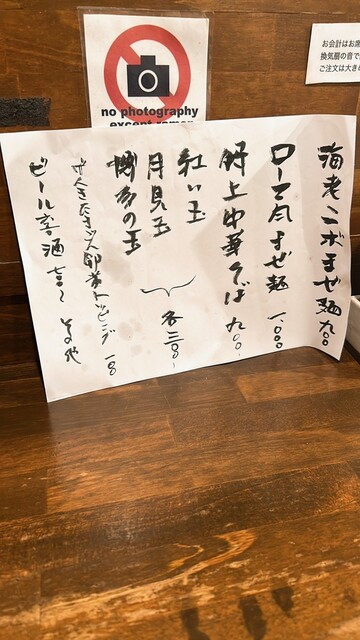 no photography
except ramen
お会計はお席
換気扇の音で
ご注文は大き
海老ニボまぜ麺 九〇〇
ローマ風まぜ麺 一〇〇〇
極上中華そば 九〇〇
紅い玉
月見玉
博多の玉
各二〇〇
トッピング 一〇〇
ビール 酒 その他